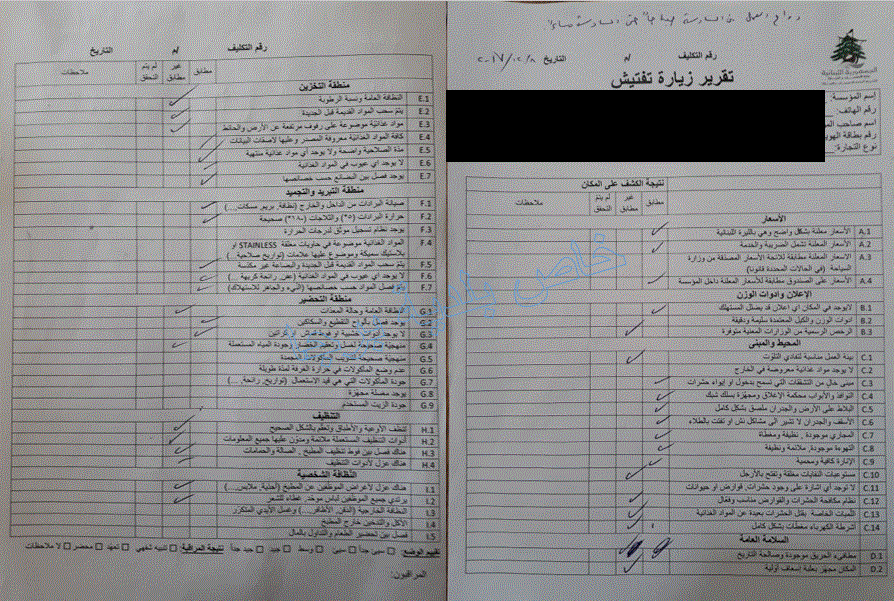 دوام العمل من السادسة صباحاً حتى السادسة مساءً
الجمهورية اللبنانية
رقم التكليف م/ التاريخ ٢٠١٧/١٢/٨
تقرير زيارة تفتيش
اسم المؤسسة:
رقم الهاتف:
اسم صاحب
رقم بطاقة
نوع التجارة:
نتيجة الكشف على المكان
مطابق غير مطابق لم يتم التحقق ملاحظات
الأسعار
A.1 الأسعار معلنة بشكل واضح وهي بالليرة اللبنانية
A.2 الأسعار المعلنة تشمل الضريبة والخدمة
A.3 الاسعار المعلنة مطابقة للائحة الأسعار المصدقة من وزارة
السياحة (في الحالات المحددة قانونا)
A.4 الأسعار على الصندوق مطابقة للأسعار المعلنة داخل المؤسسة
الإعلان وادوات الوزن
B.1 لايوجد في المكان اي اعلان قد يضلل المستهلك
B.2 ادوات الوزن والكيل المعتمدة سليمة ودقيقة
B.3 الرخص الرسمية من الوزارات المعنية متوفرة
المحيط والمبنى
C.1 بيئة العمل مناسبة لتفادي التلوث
C.2 لا يوجد مواد غذائية معروضة في الخارج
C.3 مبنى خال من التشققات التي تسمح بدخول او إيواء حشرات
C.4 النوافذ والأبواب محكمة الإغلاق ومجهزة بسلك شبك
C.5 البلاط على الأرض والجدران ملصق بشكل كامل
C.6 الأسقف والجدران لا تشير الى مشاكل نش او تفتت بالطلاء
C.7 المجاري موجودة , نظيفة ومغطاة
C.8 التهوئة موجودة, ملائمة ونظيفة
C.9 الإنارة كافية ومحمية
C.10 مستوعبات النفايات مغلقة وتفتح بالأرجل
C.11 لا توجد أي اشارة على وجود حشرات, قوارض او حيوانات
C.12 نظام مكافحة الحشرات والقوارض مناسب وفعال
C.13 المبيدات الخاصة بقتل الحشرات بعيدة عن المواد الغذائية
C.14 أشرطة الكهرباء مغطاة بشكل كامل
السلامة العامة
D.1 مطافىء الحريق موجودة وصالحة التاريخ
D.2 المكان مجهز بعلبة إسعاف أولية
رقم التكليف م/ التاريخ
مطابق غير مطابق لم يتم التحقق ملاحظات
منطقة التخزين
E.1 النظافة العامة ونسبة الرطوبة
E.2 يتم سحب المواد القديمة قبل الجديدة
E.3 مواد غذائية موضوعة على رفوف مرتفعة عن الأرض والحائط
E.4 كافة المواد الغذائية معروفة المصدر وعليها لاصقات البيانات
E.5 مدة الصلاحية واضحة ولا يوجد أي مواد غذائية منتهية
E.6 لا يوجد اي عيوب في المواد الغذائية
E.7 يوجد فصل بين البضائع حسب خصائصها
منطقة التبريد والتجميد
F.1 صيانة البرادات من الداخل والخارج (نظافة, بريم, مسكات,...)
F.2 حرارة البرادات (°٥) والثلاجات (°١٨-) صحيحة
F.3 يوجد نظام تسجيل موثق لدرجات الحرارة
F.4 المواد الغذائية موضوعة في حاويات مغلقة STAINLESS او
بلاستيك سميكة وموضوع عليها علامات (تواريخ صلاحية ...)
F.5 يتم سحب المواد القديمة قبل الجديدة والبضاعة غير مكدسة
F.6 لا يوجد اي عيوب في المواد الغذائية (عفن, رائحة كريهة ...)
F.7 يتم فصل المواد حسب خصائصها (النيء والجاهز للاستهلاك)
منطقة التحضير
G.1 النظافة العامة وحالة المعدات
G.2 يوجد فصل بألواح التقطيع والسكاكين
G.3 لا يوجد أدوات خشبية او فوط قماش او كراتين
G.4 منهجية صحيحة لغسل وتعقيم الخضار وجودة المياه المستعملة
G.5 منهجية صحيحة لتذويب المأكولات المجمدة
G.6 عدم وضع المأكولات في حرارة الغرفة لمدة طويلة
G.7 جودة المأكولات التي هي قيد الاستعمال (تواريخ, رائحة, ...)
G.8 يوجد مغسلة مجهزة
G.9 جودة الزيت المستخدم
التنظيف
H.1 تنظف الأوعية والأطباق وتعقم بالشكل الصحيح
H.2 أدوات التنظيف المستعملة ملائمة ومدون عليها جميع المعلومات
H.3 هناك فصل بين فوط تنظيف المطبخ, الصالة والحمامات
H.4 هناك عزل لأدوات التنظيف
النظافة الشخصية
I.1 هناك عزل لأغراض العاملين عن المطبخ (احذية, ملابس,...)
I.2 يرتدي جميع الموظفين لباس موحد, غطاء للشعر
I.3 النظافة الخارجية (الذقن, الأظافر,...) وغسل الأيدي المتكرر
I.4 الأكل والتدخين خارج المطبخ
I.5 فصل بين تحضير الطعام والتداول بالمال
تقييم الوضع: سيئ جداً سيئ وسط جيد جيد جداً نتيجة المراقبة: تنبيه شفهي تعهد محضر لا ملاحظات
المراقبون:
خاص